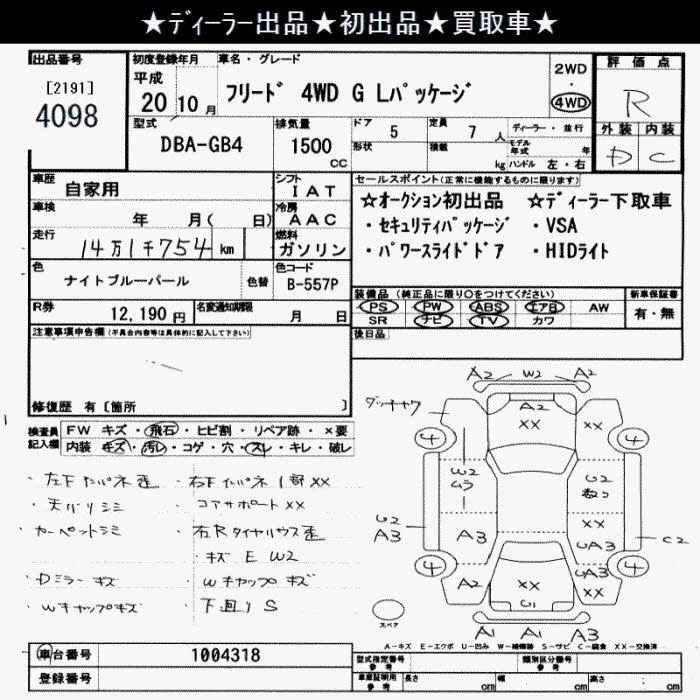 ★ディーラー出品★初出品★買取車★
出品番号
[2191]
4098
初度登録年月
平成
20 10 月
車名・グレード
フリード 4WD G Lパッケージ
2WD
4WD
評価点
R
外装 内装
D C
型式
DBA-GB4
排気量
1500
CC
ドア
5
定員
7 人
形状
積載
kg
ディーラー・並行
モデル年式 年
ハンドル 左・右
車歴
自家用
シフト
IAT
車検
年 月( 日)
冷房
AAC
走行
14万1千754 km
燃料
ガソリン
色
ナイトブルーパール
色替
色コード
B-557P
R券
12,190 円
名変通知期限
月 日
セールスポイント(正常に機能するものに限ります)
☆オークション初出品 ☆ディーラー下取車
・セキュリティパッケージ ・VSA
・パワースライドドア ・HIDライト
装備品(純正品に限り○をつけてください)
新車保証書
PS PW ABS エアB AW
SR ナビ TV カワ
有・無
後日品
注意事項申告欄(不具合内容等は具体的に記入して下さい)
修復歴 有〔箇所 〕
検査員
記入欄
FW キズ・飛石・ヒビ割・リペア跡・×要
内装 キズ・汚レ・コゲ・穴・スレ・キレ・破レ
・左下インパネ歪
・右下インパネ1部XX
・天バリシミ
・コアサポートXX
・カーペットシミ
・右Rタイヤハウス歪
・キズ E W2
・Dミラーキズ
・Wキャップキズ
・Wキャップキズ
・下回りS
A2 W2 A2
A2
XX
XX
4
4
W2
ムラ
U2
XX
U2
A3
A3
UA3
UA3
C2
4
4
A2
XX
U1
A1 A1 A3
スペア
A－キズ E－エクボ U－凹み W－補修跡 S－サビ C－腐食 XX－交換済
車台番号
1004318
登録番号
型式指定番号
参考
類別区分番号
参考
車庫証明用
参考
長さ cm
幅 cm
高さ cm